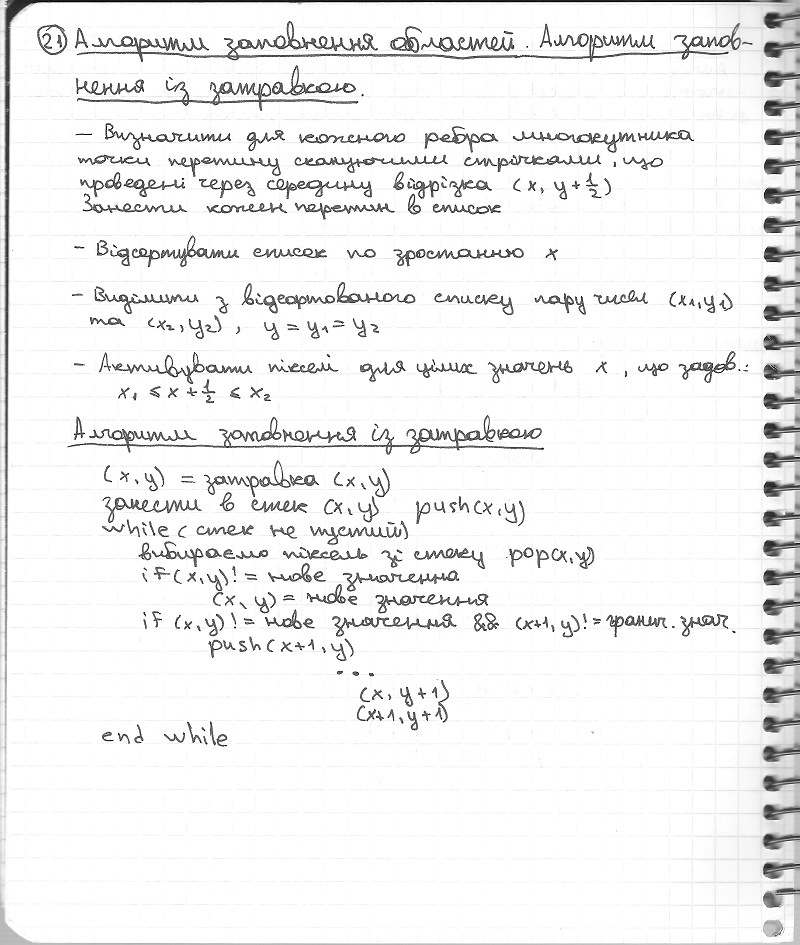 21 Алгоритм заповнення областей. Алгоритм запов-
нення із затравкою.
- Визначити для кожного ребра многокутника
точки перетину скануючими стрічками, що
проведені через середину відрізка (x, y+1/2)
Занести кожен перетин в список
- Відсортувати список по зростанню x
- Виділити з відсортованого списку пару чисел (x1,y1)
та (x2,y2), y = y1 = y2
- Активувати пікселі для цілих значень x, що задов.:
x1 ≤ x + 1/2 ≤ x2
Алгоритм заповнення із затравкою
(x,y) = затравка (x,y)
занести в стек (x,y) push(x,y)
while (стек не пустий)
вибираємо піксель зі стеку pop(x,y)
if (x,y) != нове значення
(x,y) = нове значення
if (x,y) != нове значення && (x+1,y) != гранич. знач.
push(x+1,y)
...
(x, y+1)
(x+1, y+1)
end while